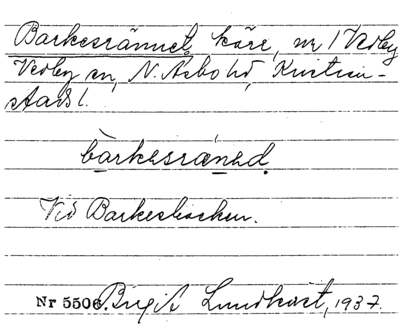 Barkesrännet, kärr, nr 1 Vedby
Vedby sn, N. Åsbo hd, Kristian-
stads l.
bàrkesræned.
Vid Barkesbacken.
Nr 5506. Birgit Lundkvist, 1937.